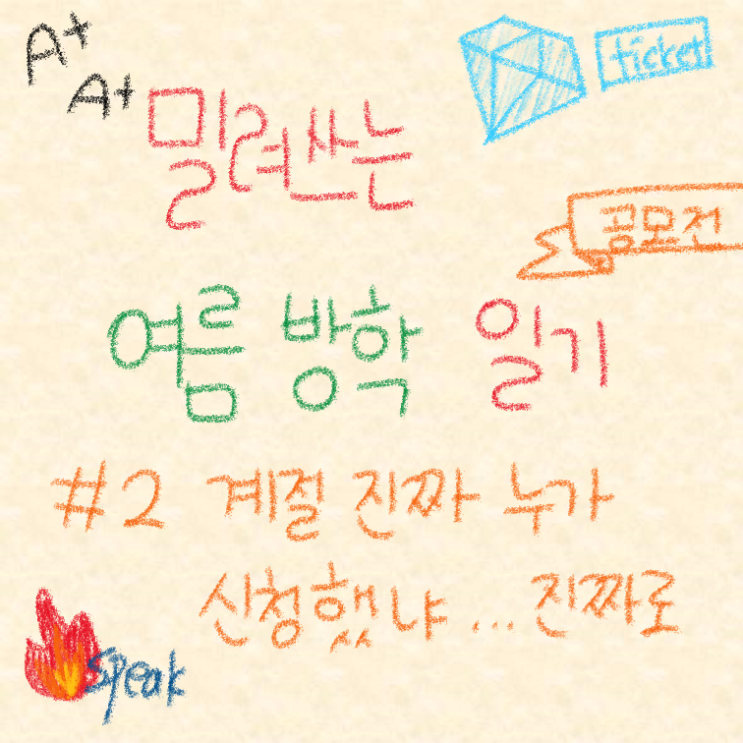 A+
A+
ticket
밀려쓰는
공모전
여름 방학 일기
#2 계절 진짜 누가
신청했냐... 진짜로
speak